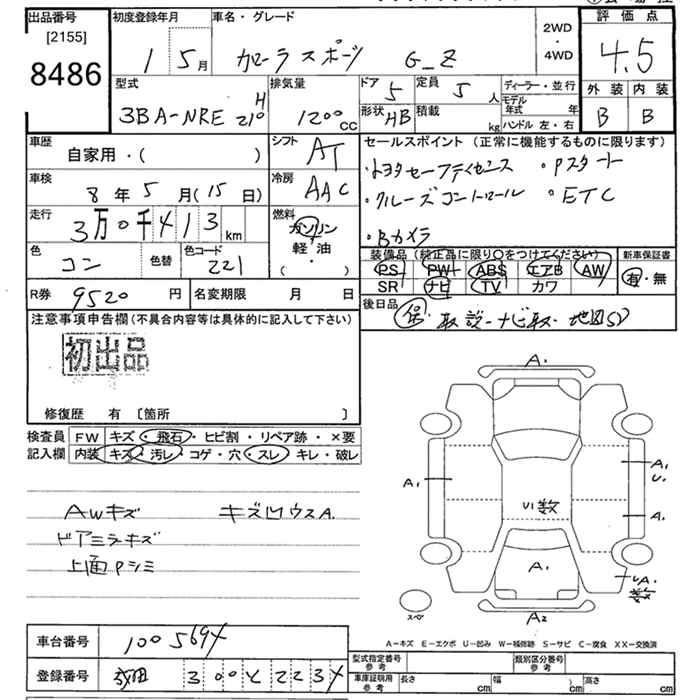 出品番号 [2155] 8486
初度登録年月 1 5月
車名・グレード カローラスポーツ G_Z
2WD・4WD
評価点 4.5
外装 内装
B B
型式 3BA-NRE210H
排気量 1200cc
ドア 5
形状 HB
定員 5人
積載 kg
ディーラー・並行
モデル年式 年
ハンドル 左・右
車歴 自家用・( )
シフト AT
車検 8年5月(15日)
冷房 AAC
走行 3万0千413km
燃料 ガソリン 軽・油 ( )
色 コン 色替
色コード 221
R券 9520円
名変期限 月 日
セールスポイント (正常に機能するものに限ります)
・トヨタセーフティセンス ・Pスタート
・クルーズコントロール ・ETC
・Bカメラ
装備品 (純正品に限り○をつけてください)
新車保証書
PS PW ABS エアB AW
有・無
SR ナビ TV カワ
後日品
保・取説・ナビ取・地図SD
注意事項申告欄 (不具合内容等は具体的に記入して下さい)
初出品
修復歴 有 [箇所 ]
検査員記入欄
FW キズ・飛石・ヒビ割・リペア跡・×要
内装 キズ・汚レ・コゲ・穴・スレ・キレ・破レ
AWキズ キズ凹ウスA.
ドアミラキズ
上面Pシミ
A.
A. A. U.
U1数
A.
A.
UA. 数
スペア
A2
A-キズ E-エクボ U-凹み W-補修跡 S-サビ C-腐食 XX-交換済
車台番号
登録番号 成田 300
型式指定番号 参考
類別区分番号 参考
車庫証明用 参考 長さ cm 幅 cm 高さ cm